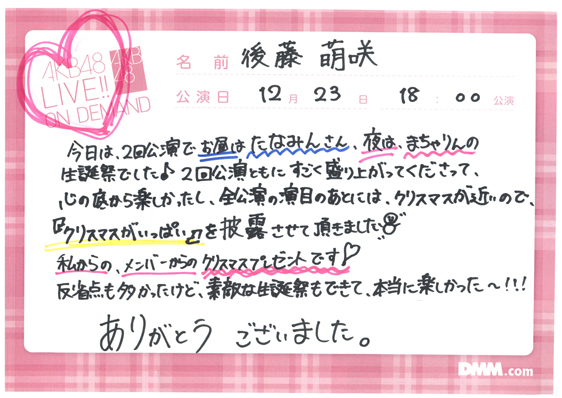 AKB48
LIVE!!
ON DEMAND
AKB
48
名前 後藤 萌咲
公演日 12月23日 18:00公演
今日は、2回公演でお昼はたなみんさん、夜は、まちゃりんの
生誕祭でした♪ 2回公演ともにすごく盛り上がってくださって、
心の底から楽しかったし、全公演の演目のあとには、クリスマスが近いので、
『クリスマスがいっぱい』を披露させて頂きました
私からの、メンバーからのクリスマスプレゼントです♡
反省点も多かったけど、素敵な生誕祭もできて、本当に楽しかった〜!!!
ありがとう ございました。
DMM.com